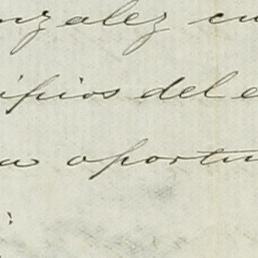 nzalez cu
ificios del e
u oportu